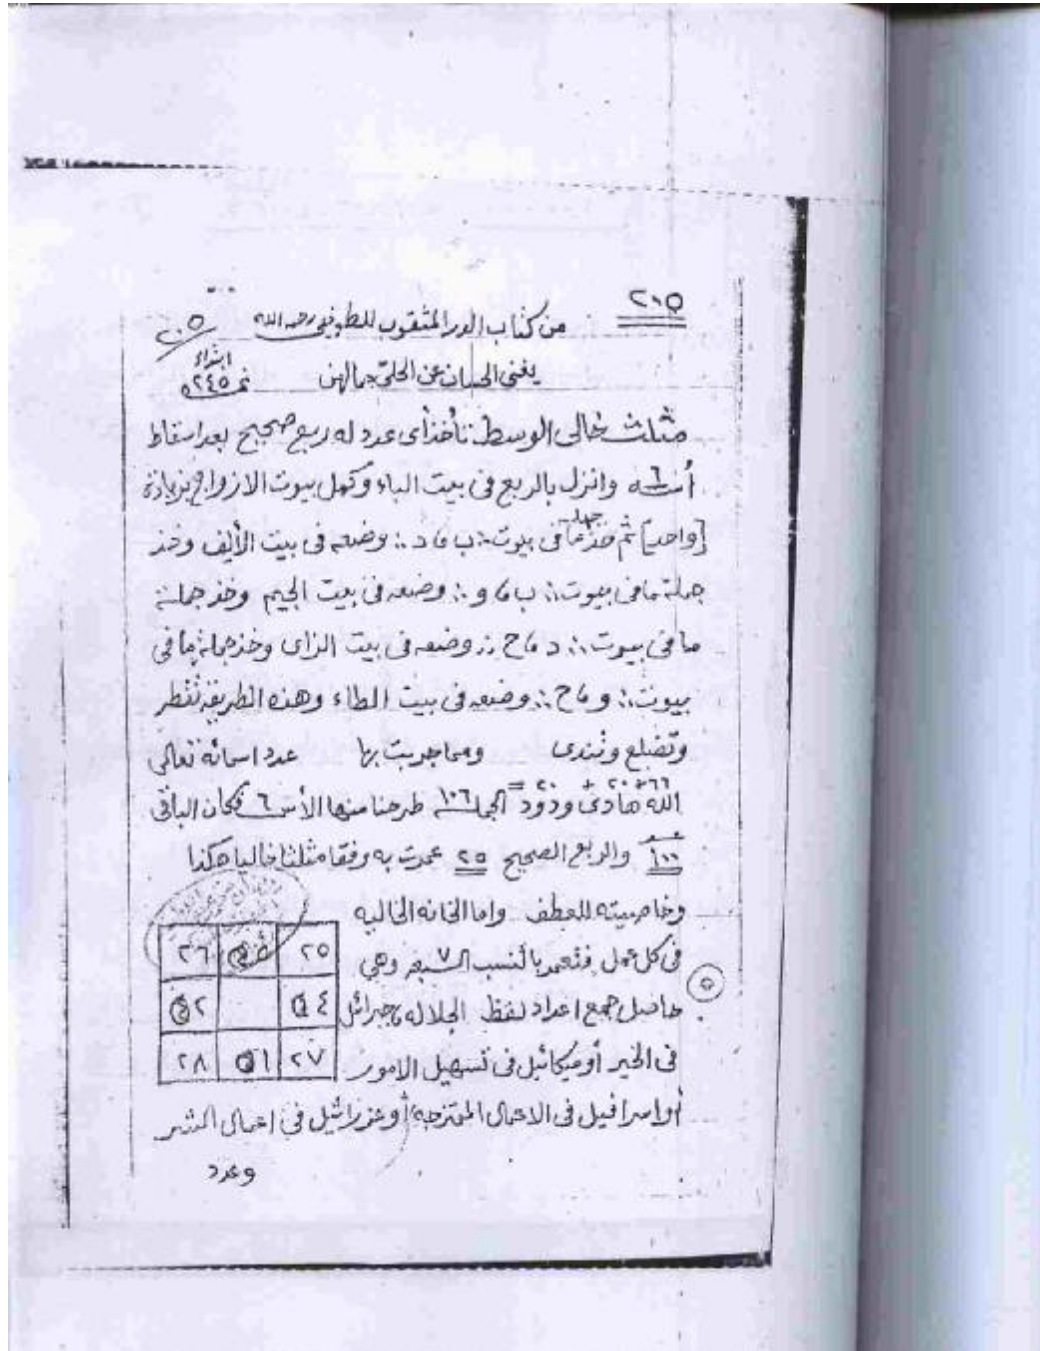 ٢٠٥
من كتاب الدر المثقوب للطوفي رحمه الله ٢٠٥
يغنى الحسان عن الحلى جمالهن ابتداء
مثلث خالى الوسط تأخذ أى عدد له ربع صحيح بعد اسقاط
أسه ٦ وانزل بالربع فى بيت الباء وكمل بيوت الازواج بزيادة
[واحد] ثم خذ جملة ما فى بيوت: ب ، د : وضعه فى بيت الألف وخذ
جملة ما فى بيوت: ب ، و : وضعه فى بيت الجيم وخذ جملة
ما فى بيوت: د ، ح : وضعه فى بيت الزاى وخذ جملة ما فى
بيوت: و ، ح : وضعه فى بيت الطاء وهذه الطريقة تقطر
وتضلع ومما جربت بها عدد اسمائه تعالى
٦٦ + ٢٠ + ٢٠ =
الله هادى ودود الجملة ١٠٦ طرحنا منها الأس ٦ فكان الباقى
١٠٠ والربع الصحيح ٢٥ عمرت به وفقا مثلثا خاليا هكذا
وخاصيته للعطف واما الخانه الخاليه
فى كل عمل فتعمر بالنسب السبعه ٧ وهي
حاصل جمع اعداد لفظ الجلاله ، جبرائل
فى الخير أو ميكائيل فى تسهيل الامور
أو اسرافيل فى الاعمال الممتزجه أو عزرائيل فى اعمال الشر
وعدد
٢٥ ٢٦
٢٧ ٢٨
٥